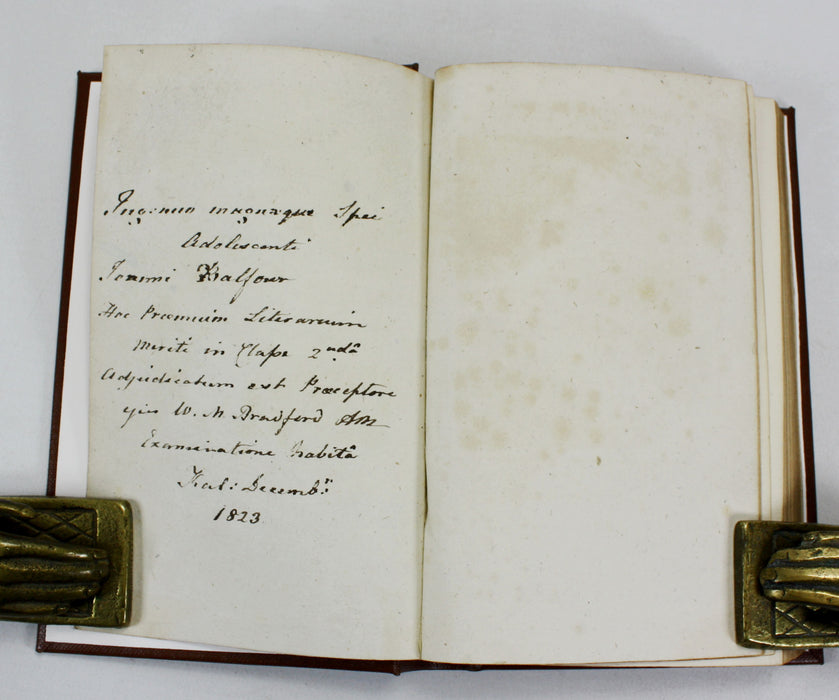 Ingenuo magnæque Spei
Adolescenti
Joanni Balfour
Hoc Præmium Literarium
Meriti in Classe 2ndâ
Adjudicatum est Præceptore
ejus W. M. Bradford AM
Examinatione habitâ
Kal: Decembris
1823